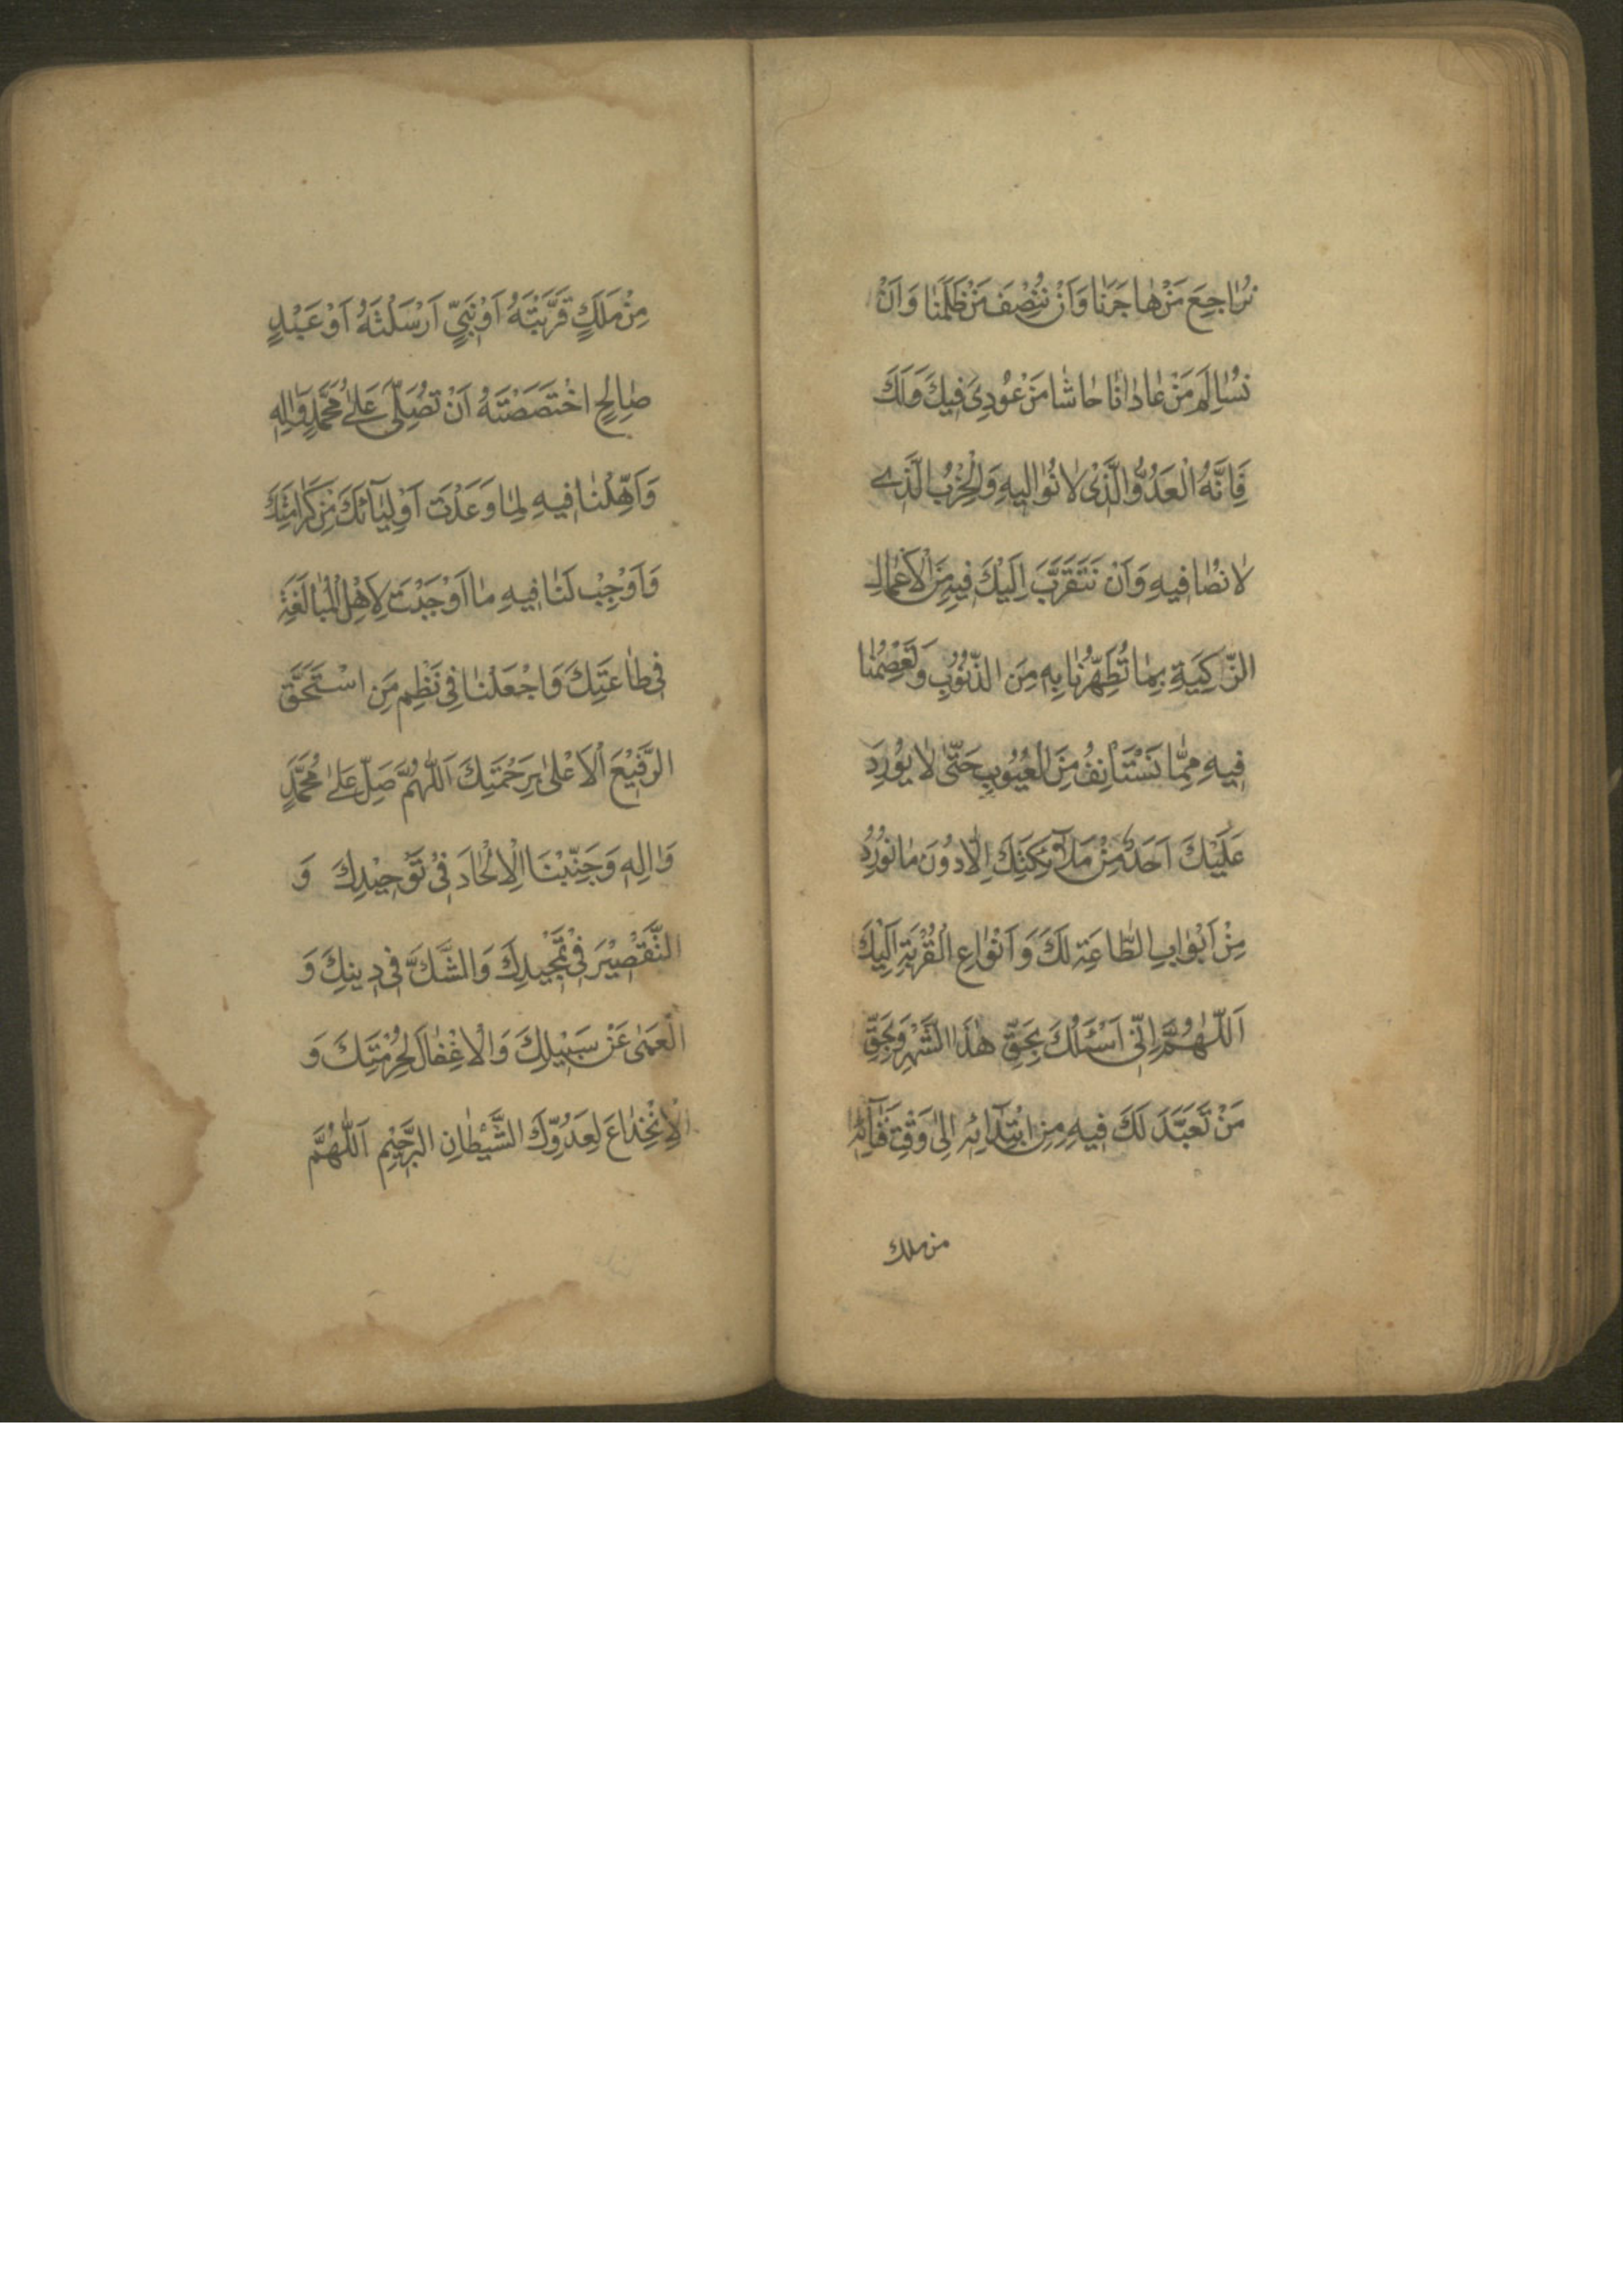 نُرٰاجِعَ مَنْ هٰاجَرَنٰا وَاَنْ نُنْصِفَ مَنْ ظَلَمَنٰا وَاَنْ
نُسٰالِمَ مَنْ عٰادٰانٰا حٰاشٰا مَنْ عُودِىَ فيكَ وَلَكَ
فَاِنَّهُ الْعَدُوُّ الَّذْى لٰا نُوٰاليهِ وَالْحِزْبُ الَّذى
لٰا نُصٰافيهِ وَاَنْ نَتَقَرَّبَ اِلَيْكَ فيهِ مِنَ الْاَعْمٰالِ
الزّٰاكِيَةِ بِمٰا تُطَهِّرُنٰا بِهِ مِنَ الذُّنُوبِ وَتَعْصِمُنٰا
فيهِ مِمّٰا نَسْتَأْنِفُ مِنَ الْعُيُوبِ حَتّٰى لٰا يُورِدَ
عَلَيْكَ اَحَدٌ مِنْ مَلٰٓائِكَتِكَ اِلّٰا دُونَ مٰا نُورِدُ
مِنْ اَبْوٰابِ الطّٰاعَةِ لَكَ وَ اَنْوٰاعِ الْقُرْبَةِ اِلَيْكَ
اَللّٰهُمَّ اِنّى اَسْئَلُكَ بِحَقِّ هٰذَا الشَّهْرِ وَبِحَقِّ
مَنْ تَعَبَّدَ لَكَ فيهِ مِنِ ابْتِدٰٓائِهِ اِلىٰ وَقْتِ فَنٰٓائِهِ
من ملك
مِنْ مَلَكٍ قَرَّبْتَهُ اَوْ نَبِىٍّ اَرْسَلْتَهُ اَوْ عَبْدٍ
صٰالِحٍ اخْتَصَصْتَهُ اَنْ تُصَلِّىَ عَلىٰ مُحَمَّدٍ وَاٰلِهِ
وَاَهِّلْنٰا فيهِ لِمٰا وَعَدْتَ اَوْلِيٰٓائَكَ مِنْ كَرٰامَتِكَ
وَاَوْجِبْ لَنٰا فيهِ مٰا اَوْجَبْتَ لِاَهْلِ الْمُبٰالَغَةِ
فى طٰاعَتِكَ وَاجْعَلْنٰا فى نَظْمِ مَنِ اسْتَحَقَّ
الرَّفيْعَ الْاَعْلىٰ بِرَحْمَتِكَ اَللّٰهُمَّ صَلِّ عَلىٰ مُحَمَّدٍ
وَاٰلِهِ وَجَنِّبْنَا الْاِلْحٰادَ فْى تَوْحيْدِكَ وَ
التَّقْصيْرَ فْى تَمْجْيدِكَ وَالشَّكَّ فى دينِكَ وَ
الْعَمىٰ عَنْ سَبْيلِكَ وَالْاِغْفٰالَ لِحُرْمَتِكَ وَ
الْاِنْخِدٰاعَ لِعَدُوِّكَ الشَّيْطٰانِ الرَّجيْمِ اَللّٰهُمَّ